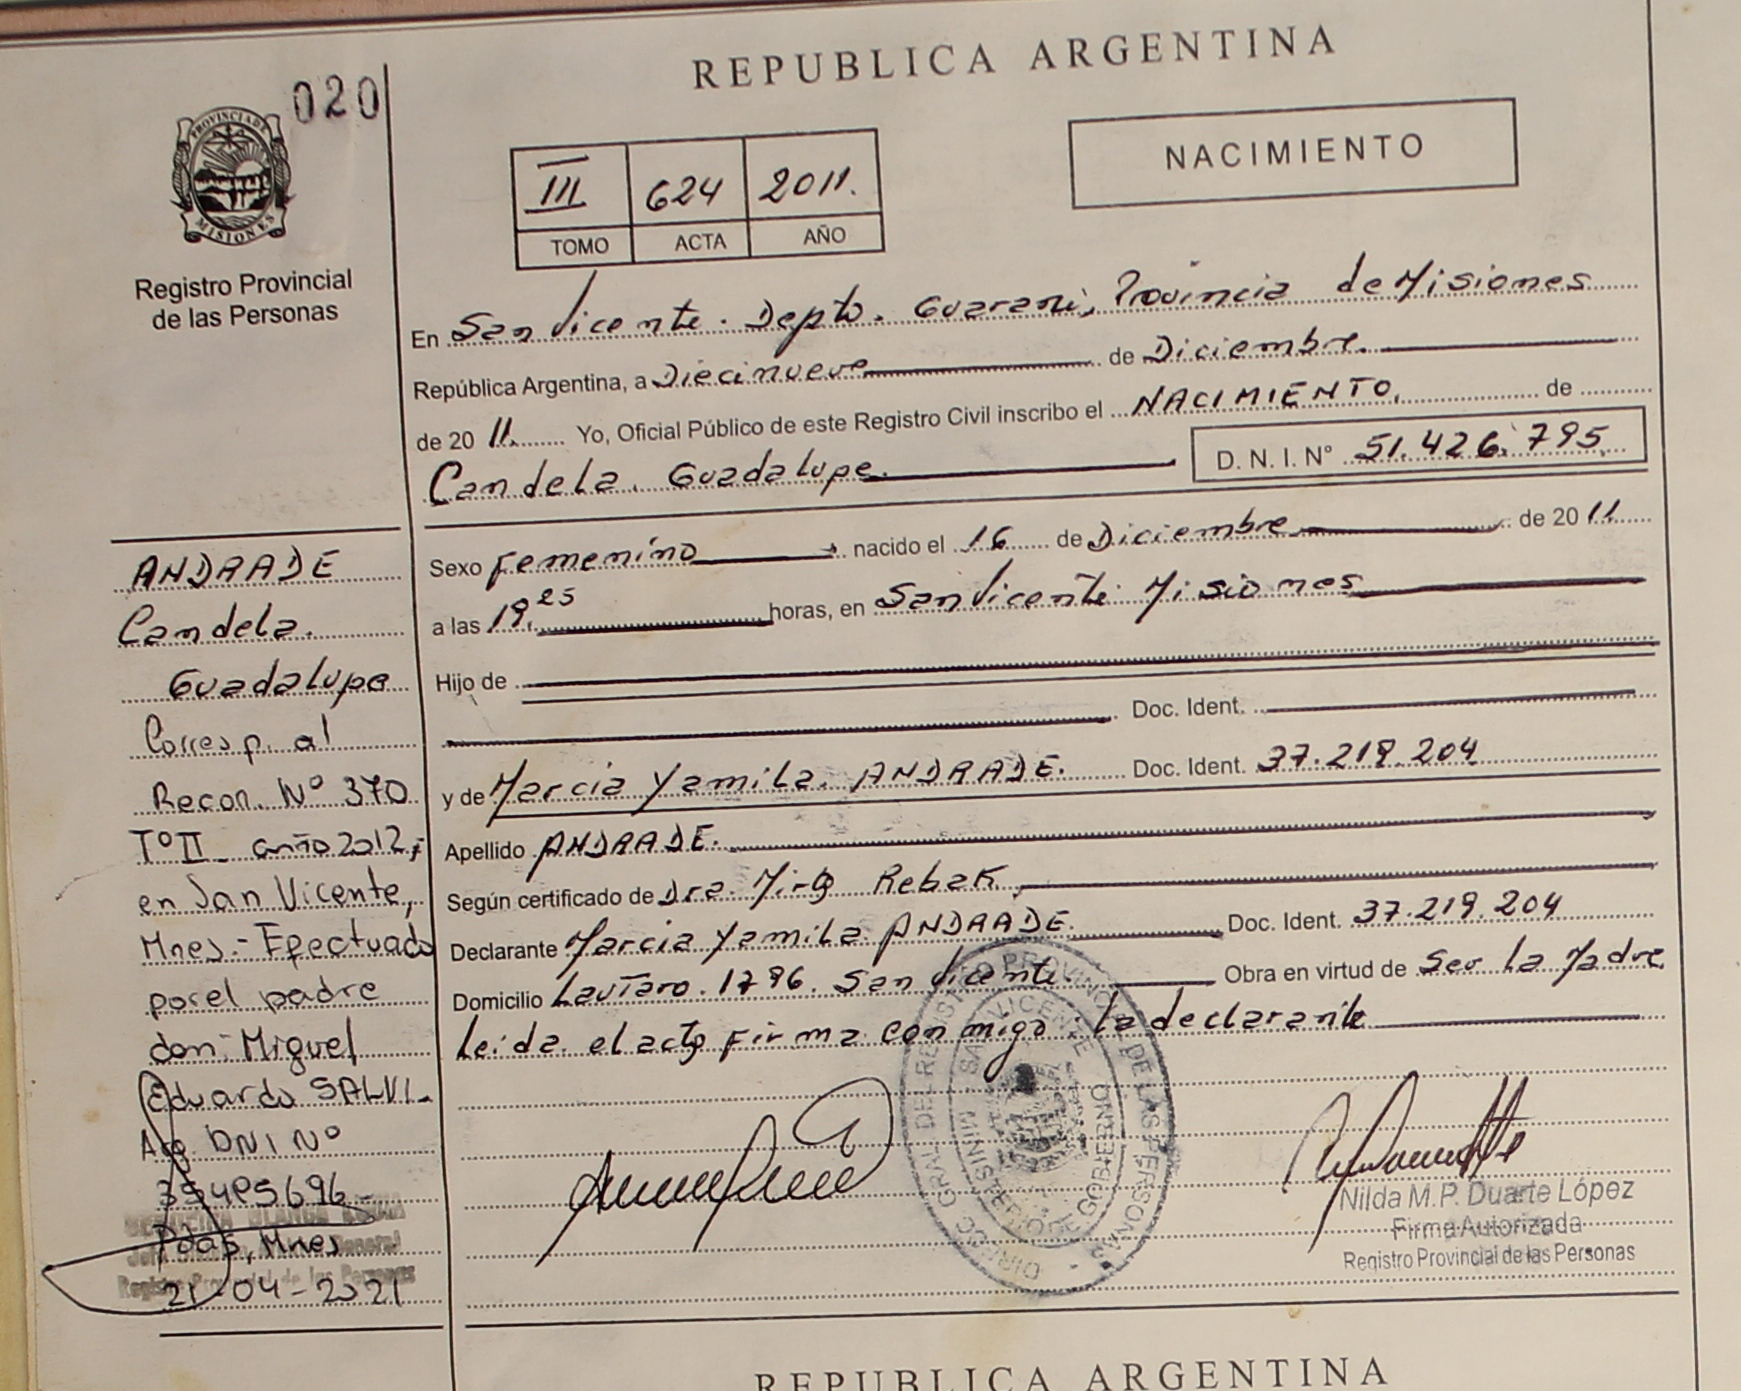 REPUBLICA ARGENTINA
020
PROVINCIA DE
MISIONES
Registro Provincial
de las Personas
III 624 2011.
TOMO ACTA AÑO
NACIMIENTO
En San Vicente. Depto. Guaraní, Provincia de Misiones
República Argentina, a Diecinueve de Diciembre.
de 20 11. Yo, Oficial Público de este Registro Civil inscribo el NACIMIENTO, de
Candela. Guadalupe. D. N. I. N° 51.426.795.
Sexo Femenino nacido el 16 de Diciembre de 20 11
a las 19,25 horas, en San Vicente Misiones
Hijo de
Doc. Ident.
y de Marcia Yamila. ANDRADE. Doc. Ident. 37.219.204
Apellido ANDRADE.
Según certificado de Dra. Rebak,
Declarante Marcia Yamila ANDRADE. Doc. Ident. 37.219.204
Domicilio Lautaro. 1796. San Vicente Obra en virtud de Ser La Madre,
leida el acta firma conmigo: la declarante
ANDRADE
Candela.
Guadalupe
Corresp. al
Recon. N° 370
T° II - año 2012,
en San Vicente,
Mnes.- Efectuado
por el padre
don: Miguel
Eduardo SALVI.-
Arg DNI N°
Pdas, Mnes
21-04-2021
DIRECC GRAL DEL REGISTRO PROVINCIAL DE LAS PERSONAS
SAN VICENTE
MINISTERIO DE GOBIERNO
Nilda M.P. Duarte López
Firma Autorizada
Registro Provincial de las Personas
General
Registro Provincial de las Personas
REPUBLICA ARGENTINA